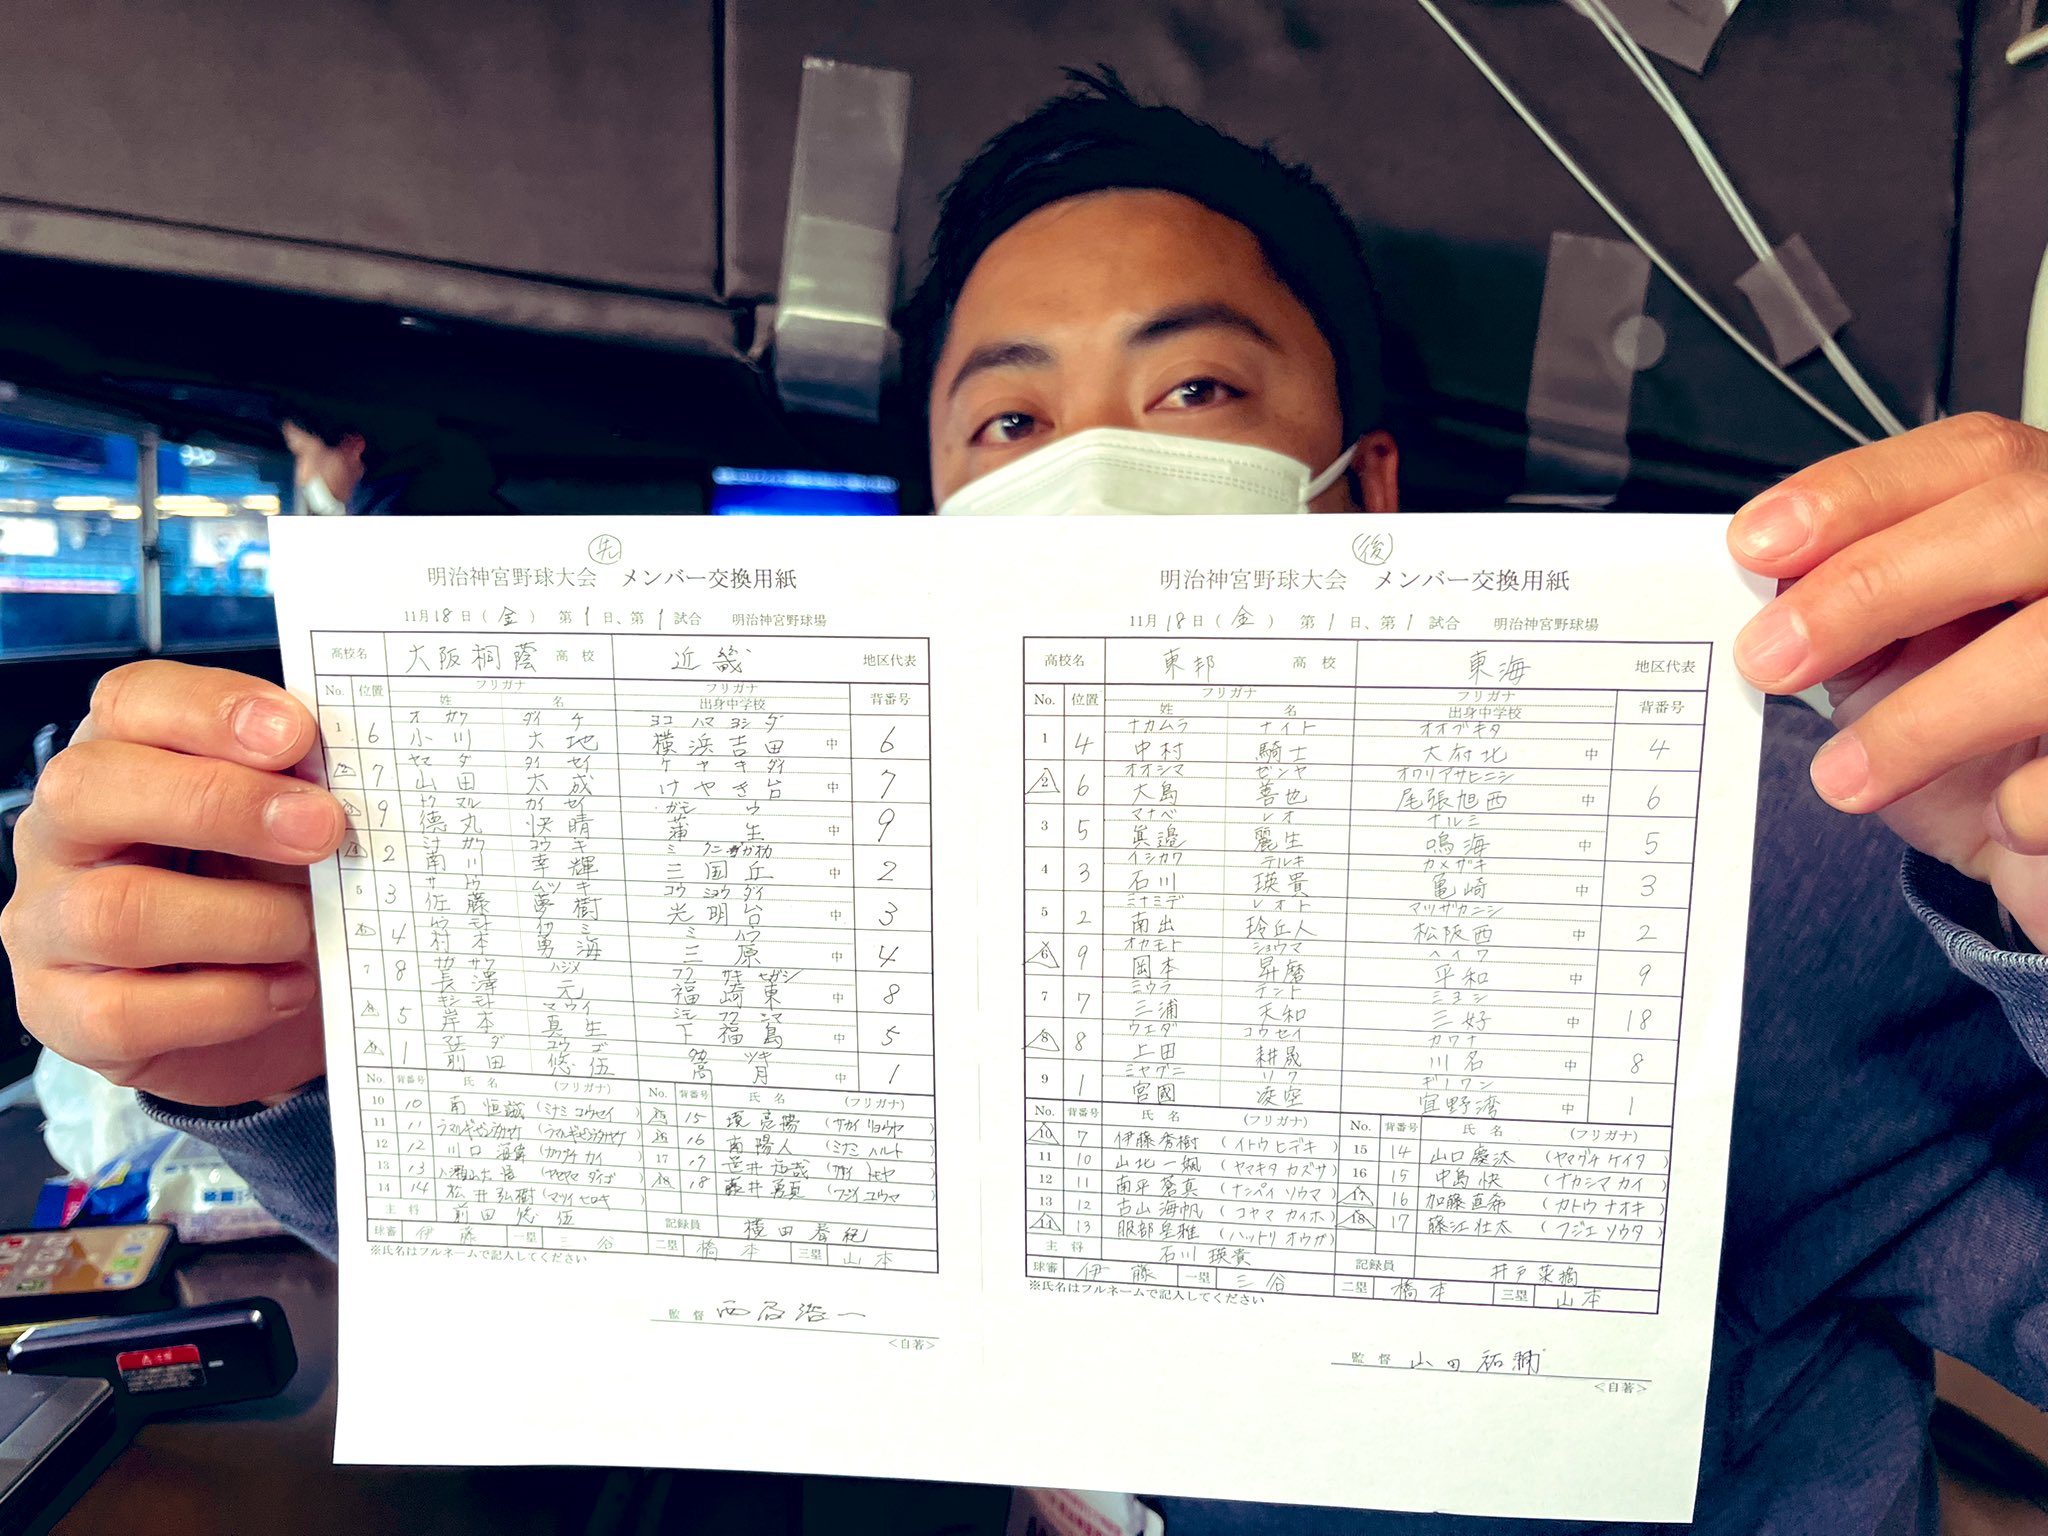 先
明治神宮野球大会 メンバー交換用紙
11月18日（金） 第1日、第1試合 明治神宮野球場
高校名 大阪桐蔭 高校 近畿 地区代表
No. 位置 フリガナ 姓 名 フリガナ 出身中学校 背番号
オガワ ダイチ ヨコハマヨシダ
1 6 小川 大地 横浜吉田 中 6
ヤマダ タイセイ ケヤキダイ
2 7 山田 太成 けやき台 中 7
トクマル カイセイ ガモウ
3 9 徳丸 快晴 蒲生 中 9
ミナミガワ コウキ ミクニガオカ
4 2 南川 幸輝 三国丘 中 2
サトウ ムツキ コウミョウダイ
5 3 佐藤 夢樹 光明台 中 3
ムラモト イサミ ミハラ
6 4 村本 勇海 三原 中 4
ナガサワ ハジメ フクサキヒガシ
7 8 長澤 元 福崎東 中 8
キシモト マウイ シモフクシマ
8 5 岸本 真生 下福島 中 5
マエダ ユウゴ タカツキ
9 1 前田 悠伍 高月 中 1
No. 背番号 氏名 （フリガナ） No. 背番号 氏名 （フリガナ）
10 10 南 恒誠 （ミナミ コウセイ） 15 15 境 亮陽 （サカイ リョウヤ）
11 11 ラマル ギービン ラタナヤケ （ラマル ギービン ラタナヤケ） 16 16 南 陽人 （ミナミ ハルト）
12 12 川口 （カワグチ カイ） 17 17 笹井 （ササイ トモヤ）
13 13 八瀬山大悟 （ヤセヤマ ダイゴ） 18 18 藤井勇真 （フジイ ユウマ）
14 14 松井弘樹 （マツイ ヒロキ）
主将 前田 悠伍 記録員 横田
球審 伊藤 一塁 三谷 二塁 橋本 三塁 山本
※氏名はフルネームで記入してください
監督 西谷浩一
＜自著＞
後
明治神宮野球大会 メンバー交換用紙
11月18日（金） 第1日、第1試合 明治神宮野球場
高校名 東邦 高校 東海 地区代表
No. 位置 フリガナ 姓 名 フリガナ 出身中学校 背番号
ナカムラ ナイト オオブキタ
1 4 中村 騎士 大府北 中 4
オオシマ ゼンヤ オワリアサヒニシ
2 6 大島 善也 尾張旭西 中 6
マナベ レオ ナルミ
3 5 眞邉 麗生 鳴海 中 5
イシカワ テルキ カメザキ
4 3 石川 瑛貴 亀崎 中 3
ミナミデ レオト マツザカニシ
5 2 南出 玲丘人 松阪西 中 2
オカモト ショウマ ヘイワ
6 9 岡本 昇磨 平和 中 9
ミウラ テント ミヨシ
7 7 三浦 天和 三好 中 18
ウエダ コウセイ カワナ
8 8 上田 耕晟 川名 中 8
ミヤグニ リク ギノワン
9 1 宮國 凌空 宜野湾 中 1
No. 背番号 氏名 （フリガナ） No. 背番号 氏名 （フリガナ）
10 7 伊藤秀樹 （イトウ ヒデキ） 15 14 山口慶汰 （ヤマグチ ケイタ）
11 10 山北一颯 （ヤマキタ カズサ） 16 15 中島快 （ナカシマ カイ）
12 11 南平蒼真 （ナンペイ ソウマ） 17 16 加藤直希 （カトウ ナオキ）
13 12 古山海帆 （コヤマ カイホ） 18 17 藤江壮太 （フジエ ソウタ）
14 13 服部皇雅 （ハットリ オウガ）
主将 石川 瑛貴 記録員 井戸菜摘
球審 伊藤 一塁 三谷 二塁 橋本 三塁 山本
※氏名はフルネームで記入してください
監督 山田祐輔
＜自著＞